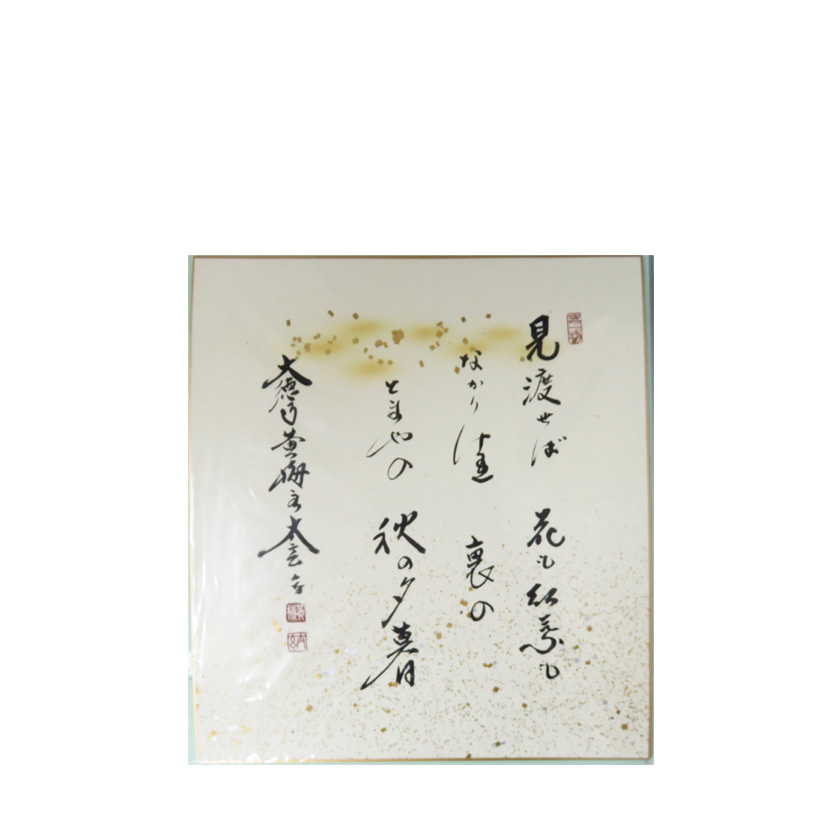 見渡せば 花も紅葉も
なかりけり 裏の
とまやの 秋の夕暮
大徳寺黄梅院太玄書